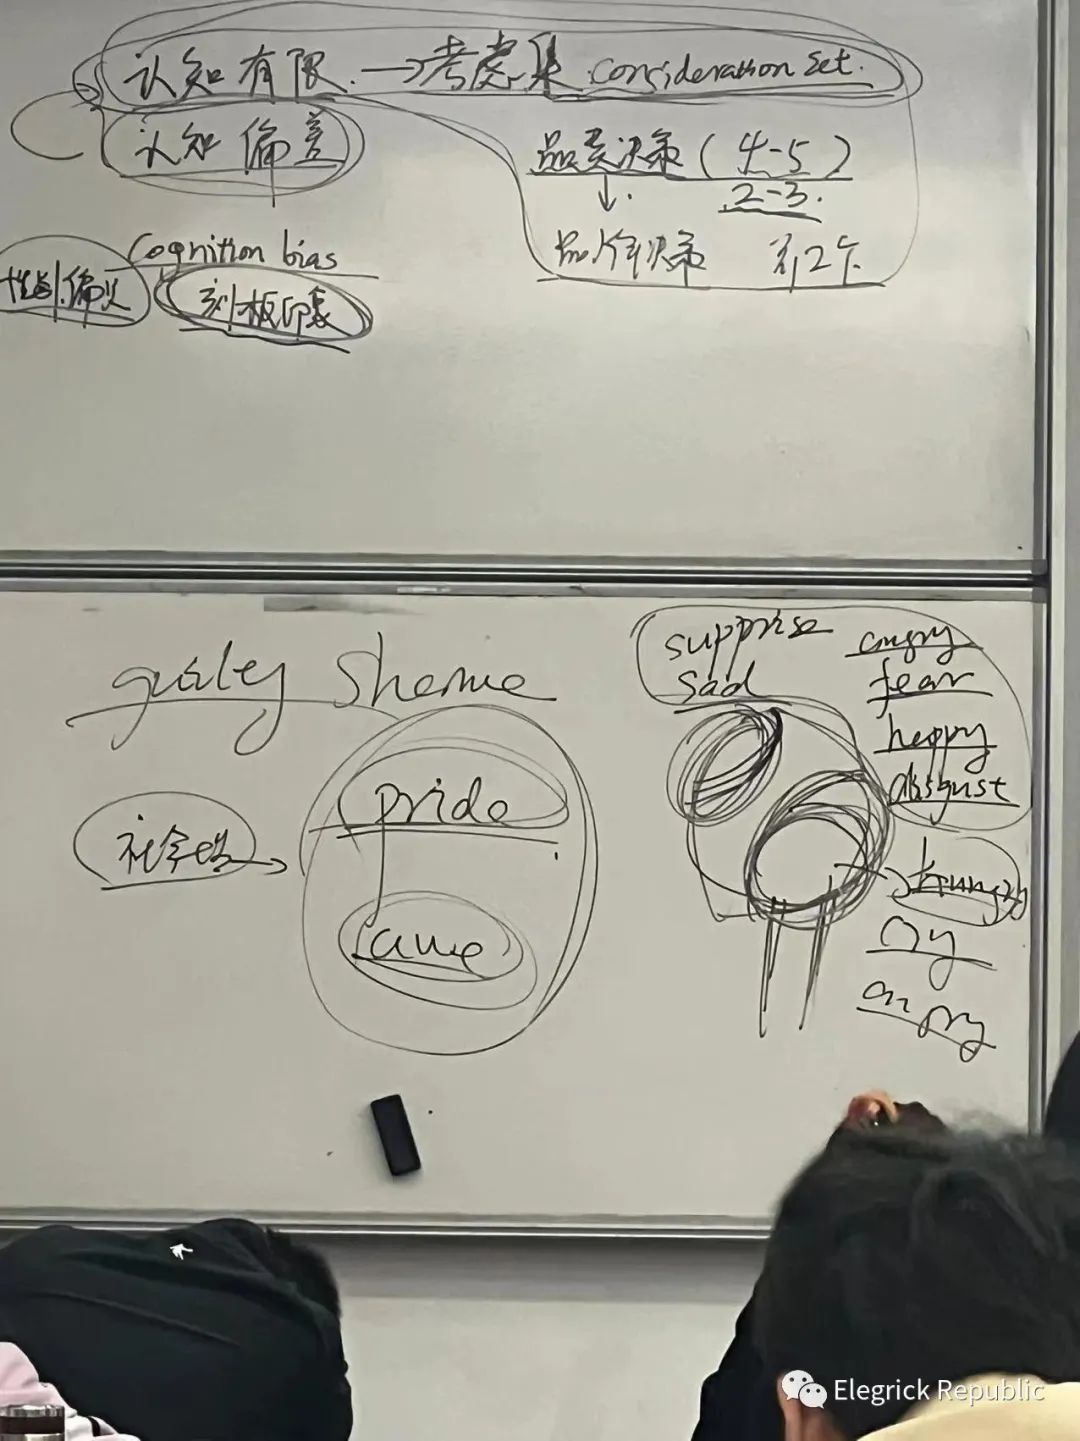 认知有限 → 考虑集 Consideration Set.
认知偏差
品类决策 (4-5)
2-3.
↓
品牌决策 前2个
Cognition bias
性别偏见
刻板印象
guilty Shame
pride
awe
社会性 →
supprise
sad
angry
fear
happy
disgust
hungry
cry
angry
Elegrick Republic